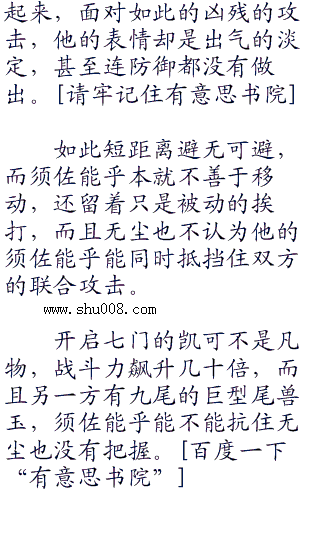 起来，面对如此的凶残的攻
击，他的表情却是出气的淡
定，甚至连防御都没有做
出。[请牢记住有意思书院]
如此短距离避无可避，
而须佐能乎本就不善于移
动，还留着只是被动的挨
打，而且无尘也不认为他的
须佐能乎能同时抵挡住双方
的联合攻击。
www.shu008.com
开启七门的凯可不是凡
物，战斗力飙升几十倍，而
且另一方有九尾的巨型尾兽
玉，须佐能乎能不能抗住无
尘也没有把握。[百度一下
“有意思书院”]